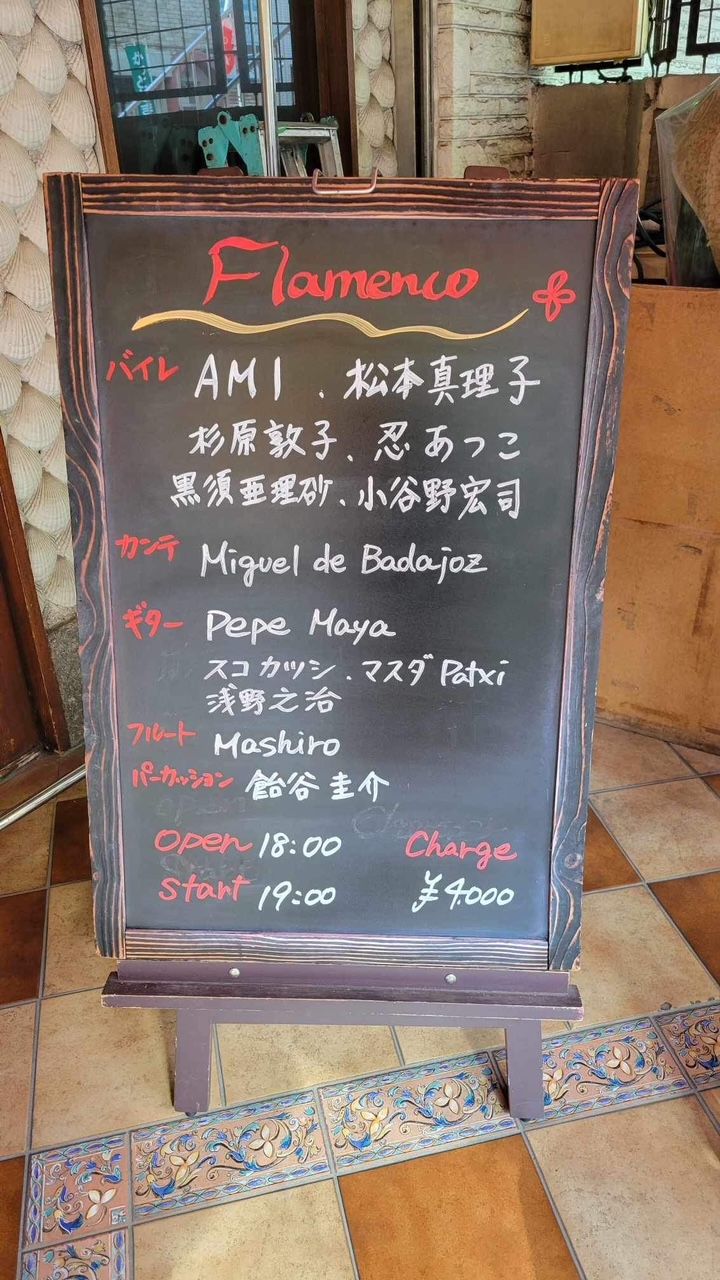 Flamenco
バイレ AMI、松本真理子
杉原敦子、忍あつこ
黒須亜理砂、小谷野宏司
カンテ Miguel de Badajoz
ギター Pepe Maya
スコカツシ、マスダPatxi
浅野之治
フルート Mashiro
パーカッション 飴谷圭介
open 18:00 Charge
start 19:00 ¥4.000